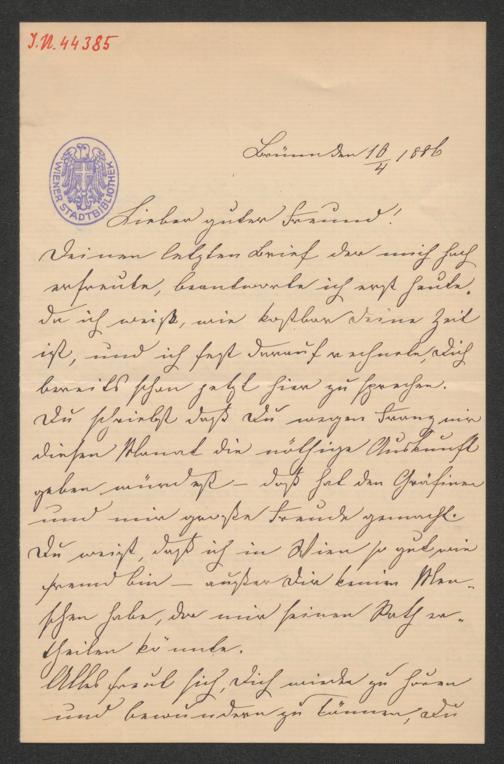 I.N. 44385
WIENER STADTBIBLIOTHEK
Brünn den 10/4 1886
Lieber guter Freund!
Deinen letzten Brief der mich hoch
erfreute, beantworte ich erst heute,
da ich weiß, wie kostbar Deine Zeit
ist, und ich fest darauf rechnete, Dich
bereits schon jetzt hier zu sprechen.
Du schriebst daß Du wegen Franz mir
diesen Monat die nöthige Auskunft
geben würdest – daß hat den Gräfinen
und mir große Freude gemacht.
Du weißt, daß ich in Wien so gut wie
fremd bin – außer Dir keinen Men-
schen habe, der mir seinen Rath er-
theilen könnte.
Alles freut sich, Dich wieder zu hören
und bewundern zu können, Du